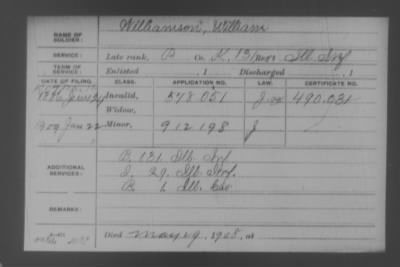 NAME OF SOLDIER: Williamson, William
SERVICE: Late rank, P Co. K, 131 Reg't Ill. Inf
TERM OF SERVICE: Enlisted , 1 Discharged , 1
DATE OF FILING. CLASS. APPLICATION NO. LAW. CERTIFICATE NO.
Invalid, 578 051 490.031
Widow,
1909 Jan 22 Minor, 912 198 J
ADDITIONAL SERVICES: P. 131 Ill. Inf
I. 29. Ill. Inf.
B 6 Ill. Cav
REMARKS:
Died May 29, 1908, at